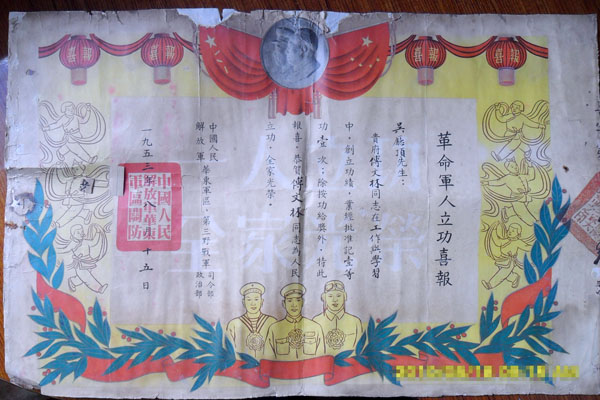 喜報
喜報
喜報
喜報
革命軍人立功喜報
吳 頂先生：
貴府傅文 同志在工作與學習
中，創立功績，業經批准記壹等
功壹次；除按功給獎外，特此
報喜，恭賀傅文 同志為人民
立功，全家光榮。
中國人民
解放軍 華東軍區 第三野戰軍 司令部 政治部
一九五二 八 十五日
中國人民
解放軍華東
軍區關防